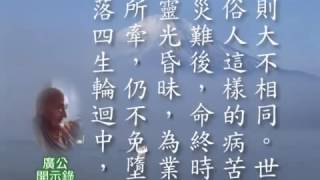 則大不相同。世
俗人這樣的病苦
災難後，命終時
靈光昏昧，為業
所牽，仍不免墮
落四生輪迴中，
廣公
開示錄